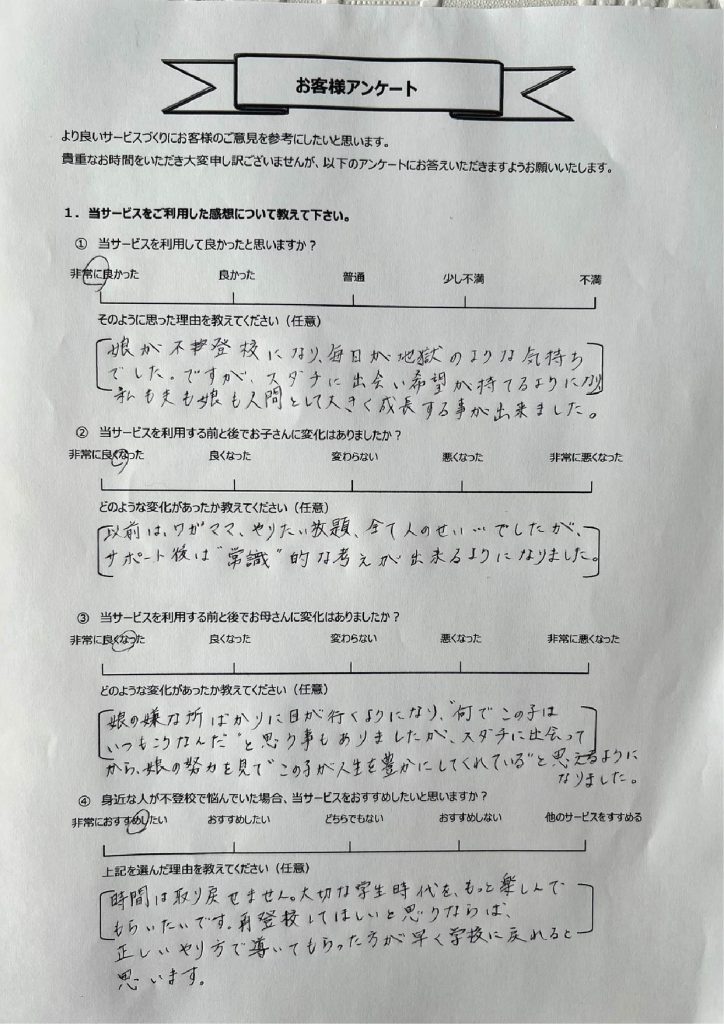 お客様アンケート
より良いサービスづくりにお客様のご意見を参考にしたいと思います。
貴重なお時間をいただき大変申し訳ございませんが、以下のアンケートにお答えいただきますようお願いいたします。
1．当サービスをご利用した感想について教えて下さい。
① 当サービスを利用して良かったと思いますか？
非常に良かった 良かった 普通 少し不満 不満
そのように思った理由を教えてください（任意）
娘が不登校になり、毎日が地獄のような気持ち
でした。ですが、スダチに出会い希望が持てるようになり
私も夫も娘も人間として大きく成長する事が出来ました。
② 当サービスを利用する前と後でお子さんに変化はありましたか？
非常に良くなった 良くなった 変わらない 悪くなった 非常に悪くなった
どのような変化があったか教えてください（任意）
以前は、ワガママ、やりたい放題、全て人のせい…でしたが、
サポート後は"常識"的な考えが出来るようになりました。
③ 当サービスを利用する前と後でお母さんに変化はありましたか？
非常に良くなった 良くなった 変わらない 悪くなった 非常に悪くなった
どのような変化があったか教えてください（任意）
娘の嫌な所ばかりに目が行くようになり、"何でこの子は
いつもこうなんだ"と思う事もありましたが、スダチに出会って
から、娘の努力を見て"この子が人生を豊かにしてくれている"と思えるように
なりました。
④ 身近な人が不登校で悩んでいた場合、当サービスをおすすめしたいと思いますか？
非常におすすめしたい おすすめしたい どちらでもない おすすめしない 他のサービスをすすめる
上記を選んだ理由を教えてください（任意）
時間は取り戻せません。大切な学生時代を、もっと楽しんで
もらいたいです。再登校してほしいと思うならば、
正しいやり方で導いてもらった方が早く学校に戻れると
思います。